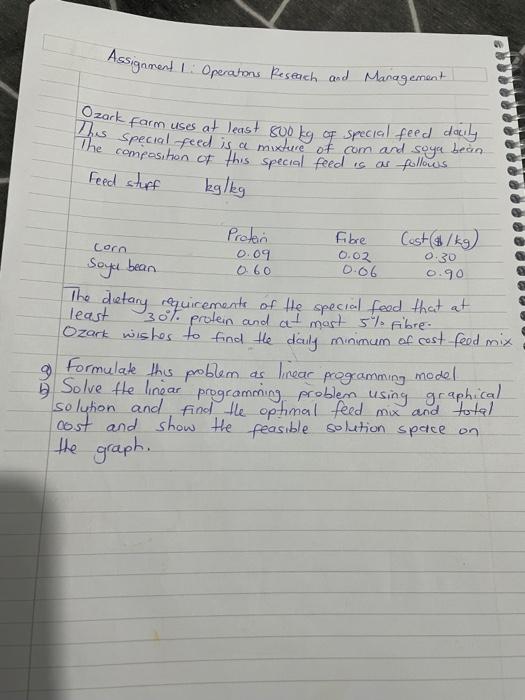 Assignment 1: Operations Reseach and Management
Ozark farm uses at least 800 kg of special feed daily
This special feed is a mixture of corn and soya bean
The composition of this special feed is as follows
Feed stuff kg/kg
Protein Fibre Cost($/kg)
corn 0.09 0.02 0.30
Soya bean 0.60 0.06 0.90
The dietary requirements of the special feed that at
least 30% protein and at most 5% Fibre.
Ozark wishes to find the daily minimum of cost feed mix
a) Formulate this problem as linear programming model
b) Solve the linear programming problem using graphical
solution and find the optimal feed mix and total
cost and show the feasible solution space on
the graph.